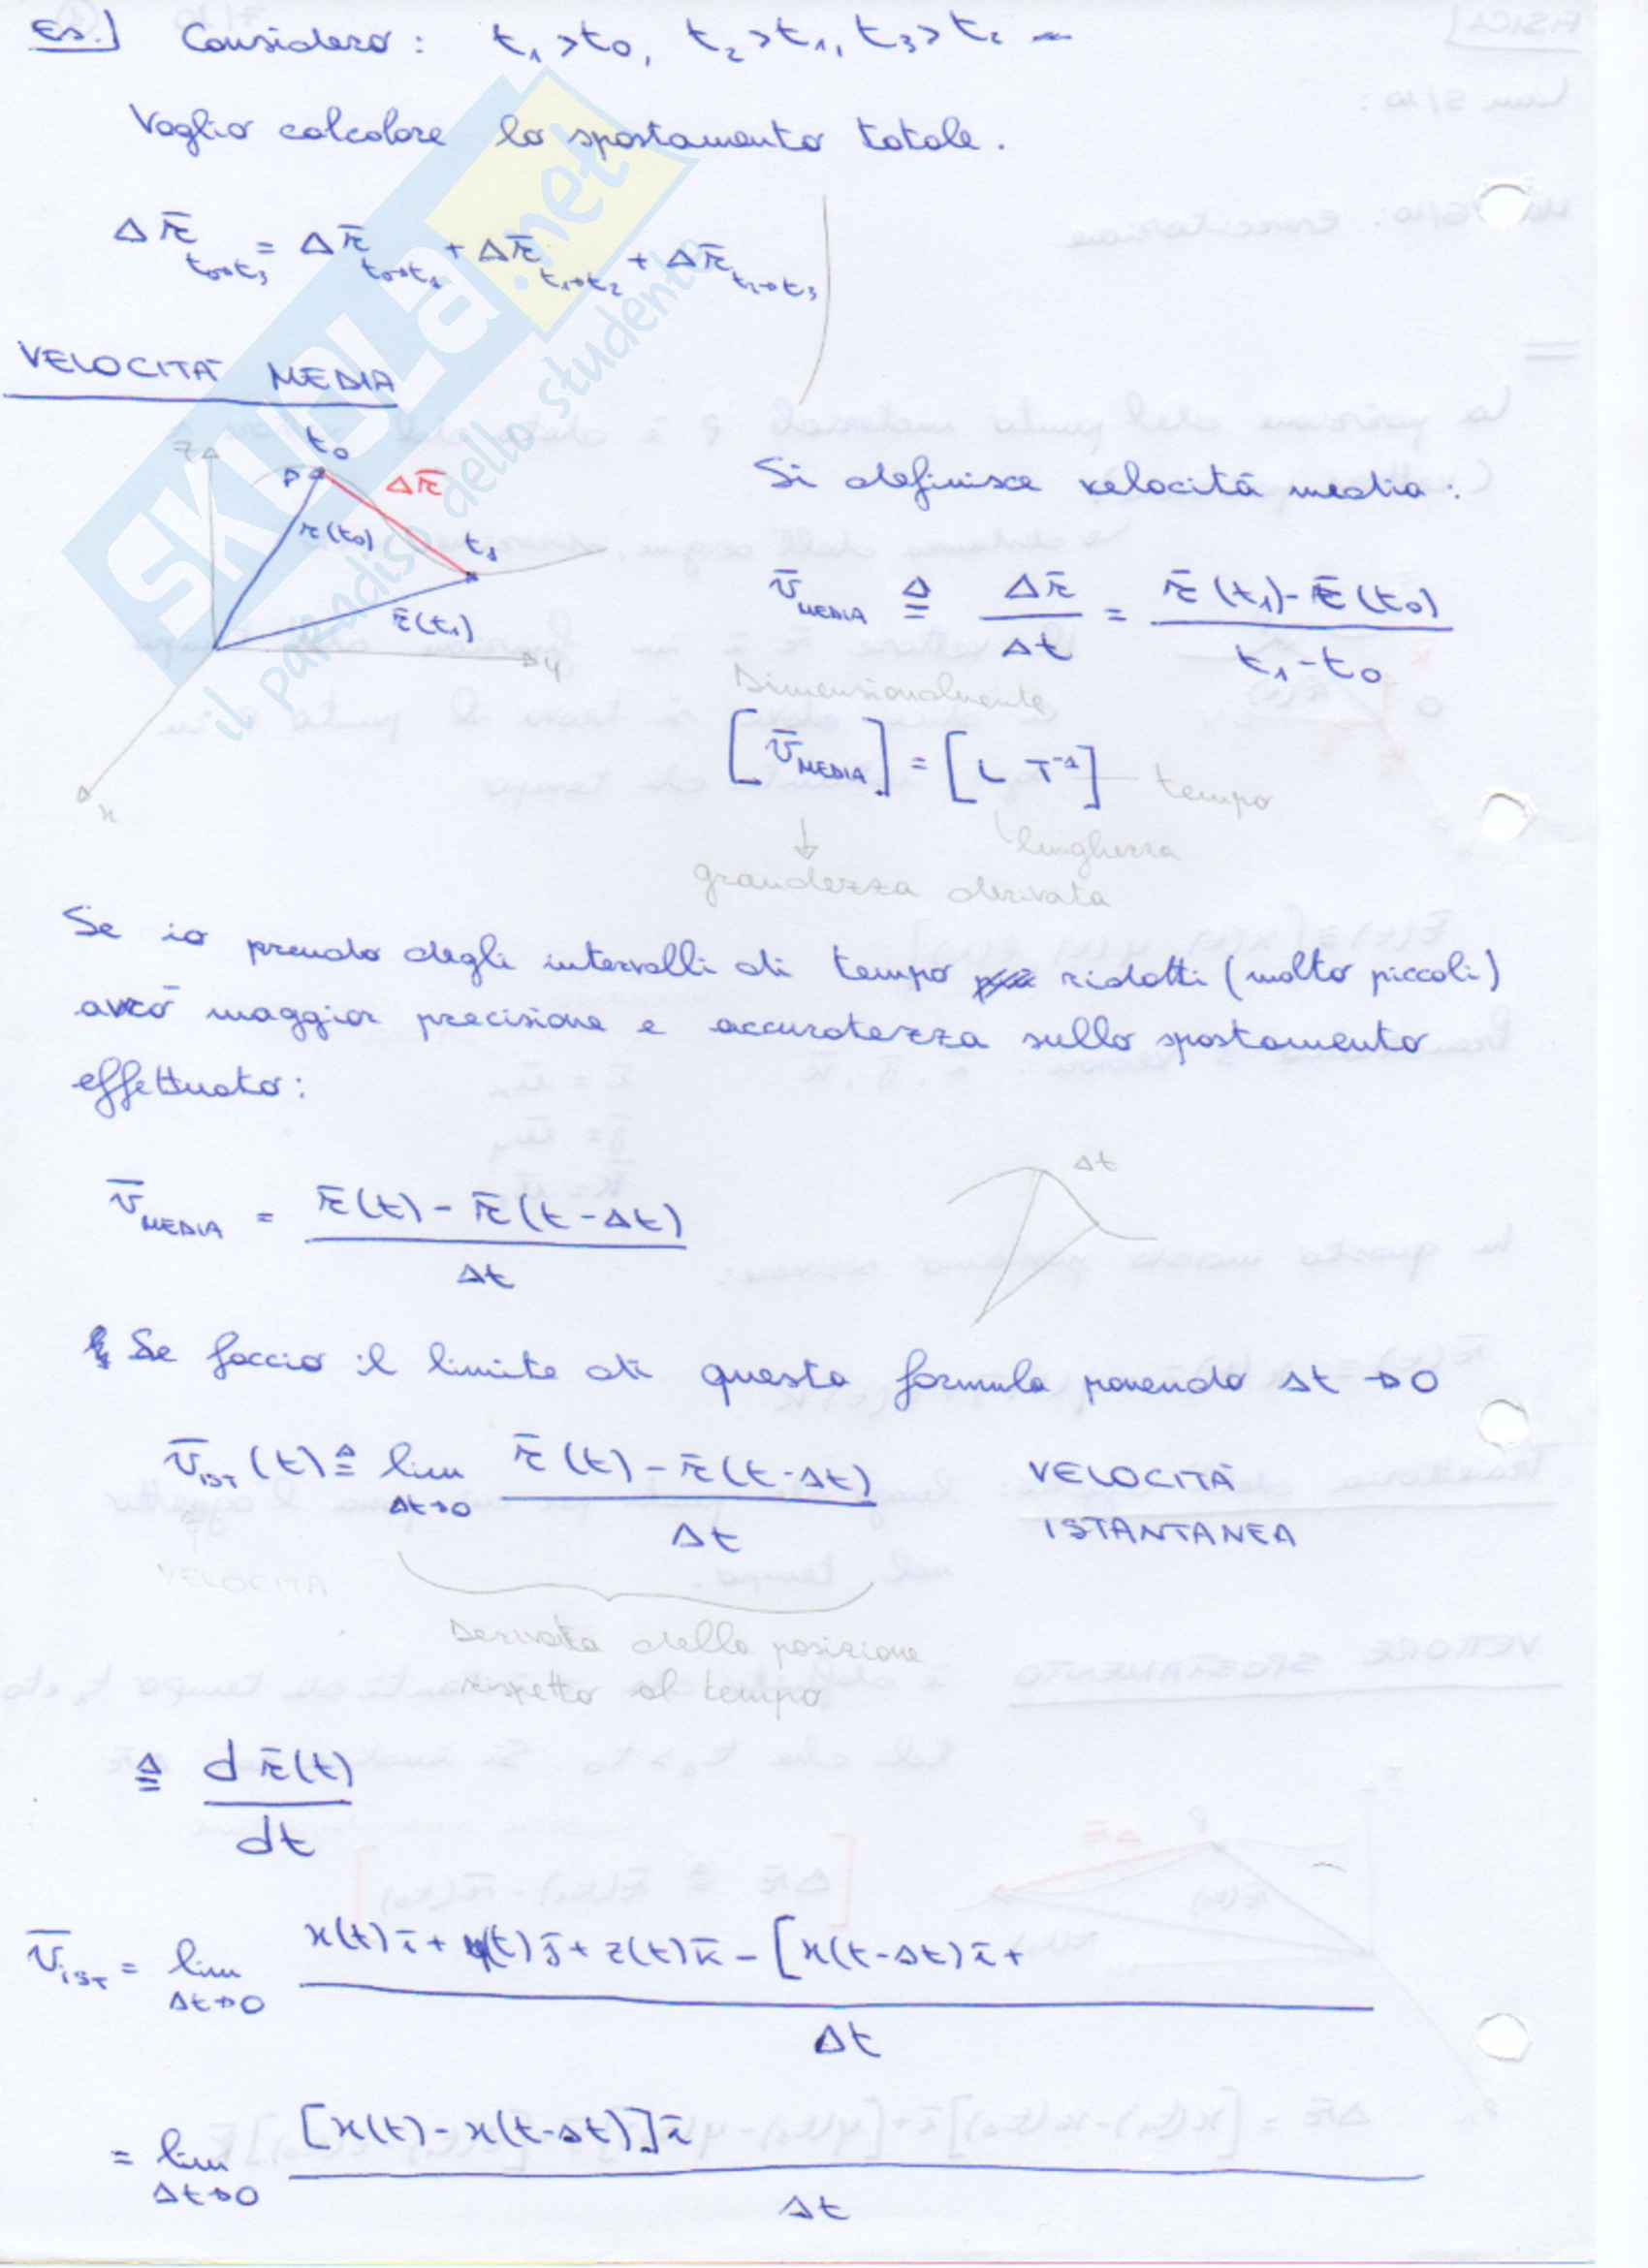 Es.] Considero: t₁>t₀, t₂>t₁, t₃>t₂
Voglio calcolare lo spostamento totale.
Δr̄ t₀→t₃ = Δr̄ t₀→t₁ + Δr̄ t₁→t₂ + Δr̄ t₂→t₃
VELOCITÀ MEDIA
z
t₀
P
Δr̄
r(t₀)
t₁
r̄(t₁)
y
x
Si definisce velocità media:
v̄ MEDIA ≜ Δr̄/Δt = (r̄(t₁) - r̄(t₀))/(t₁ - t₀)
Dimensionalmente
[v̄ MEDIA] = [L T⁻¹] tempo
lunghezza
grandezza derivata
Se io prendo degli intervalli di tempo ridotti (molto piccoli)
avrò maggior precisione e accuratezza sullo spostamento
effettuato:
v̄ MEDIA = (r̄(t) - r̄(t-Δt))/Δt
Δt
Se faccio il limite di questa formula ponendo Δt → 0
v̄ IST (t) ≜ lim Δt→0 (r̄(t) - r̄(t-Δt))/Δt
VELOCITÀ
ISTANTANEA
VELOCITÀ
Derivata della posizione
rispetto al tempo
≜ d r̄(t)/dt
v̄ IST = lim Δt→0 (x(t)ī + y(t)j̄ + z(t)k̄ - [x(t-Δt)ī +)/Δt
= lim Δt→0 ([x(t) - x(t-Δt)]ī)/Δt
SKUOLA.net
il paradiso dello studente